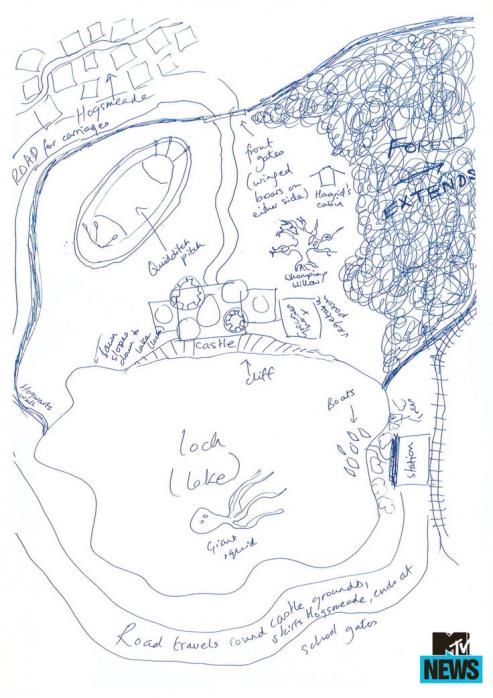 Hogsmeade
ROAD for carriages
front
gates
(winged
boars on
either side)
Hagrid's
cabin
FOREST
EXTENDS
Quidditch
pitch
Whomping
Willow
castle
Lawn
slopes
down to
lake
cliff
Hogwarts
Boats
station
Loch
(Lake)
Giant
squid
Road travels round castle grounds,
skirts Hogsmeade, ends at
school gates
MTV
NEWS